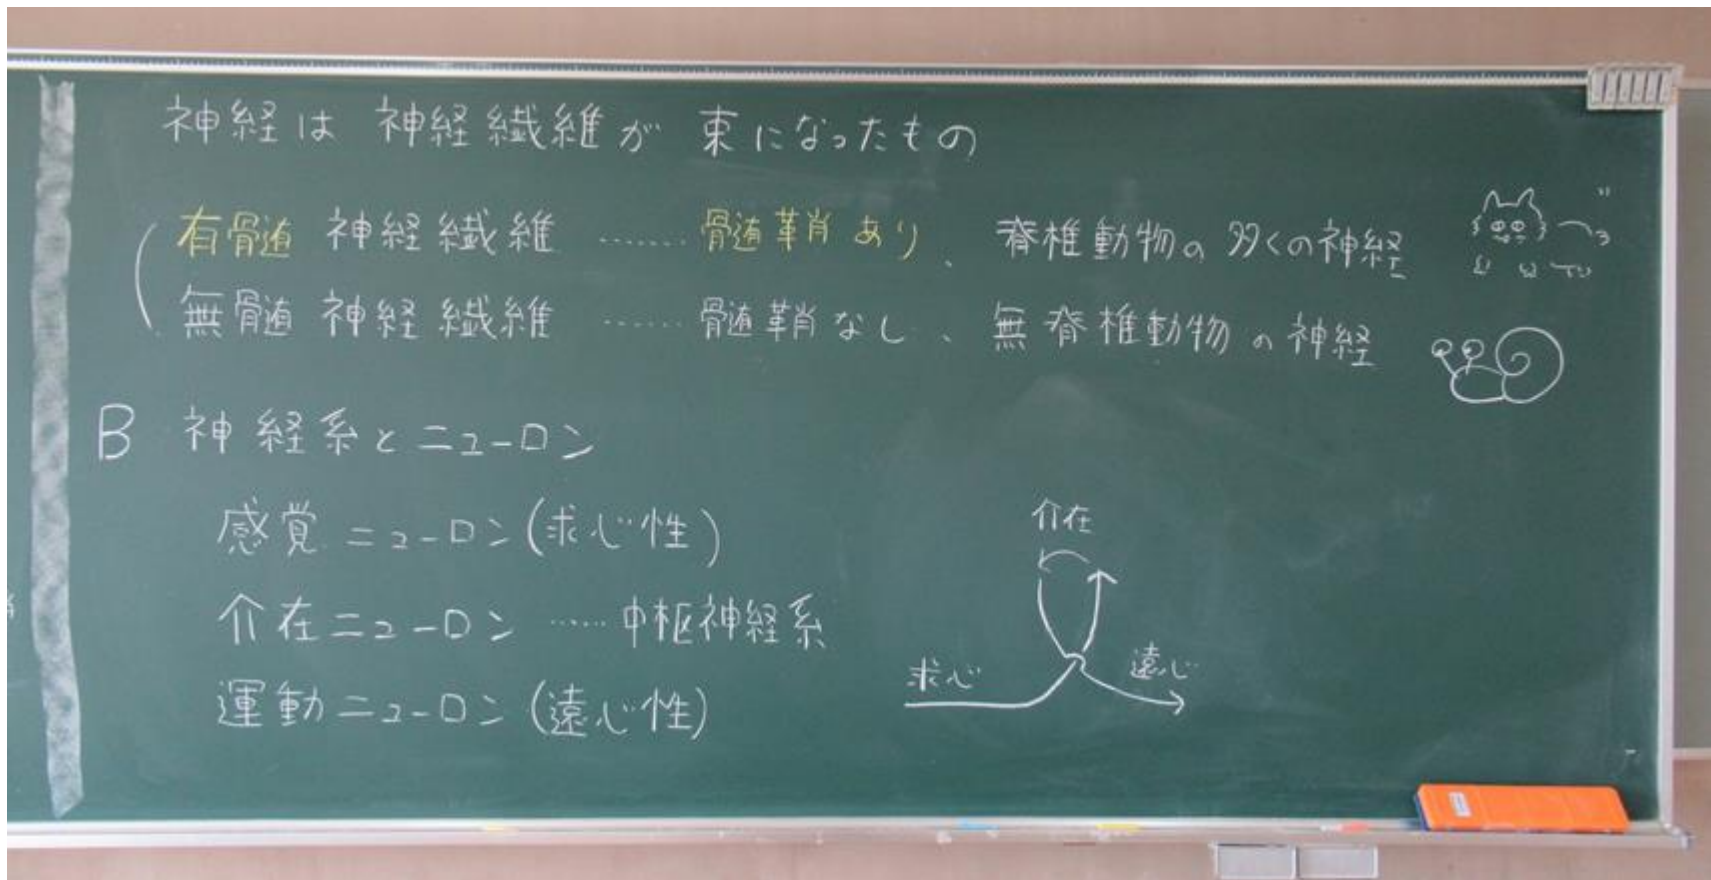 神経は 神経繊維が 束になったもの
有骨髄 神経繊維 …… 骨髄鞘 あり、脊椎動物の 多くの神経
無骨髄 神経繊維 …… 骨髄鞘 なし、無脊椎動物の神経
B 神経系とニューロン
感覚ニューロン(求心性)
介在ニューロン ……中枢神経系
運動ニューロン(遠心性)
介在
求心
遠心